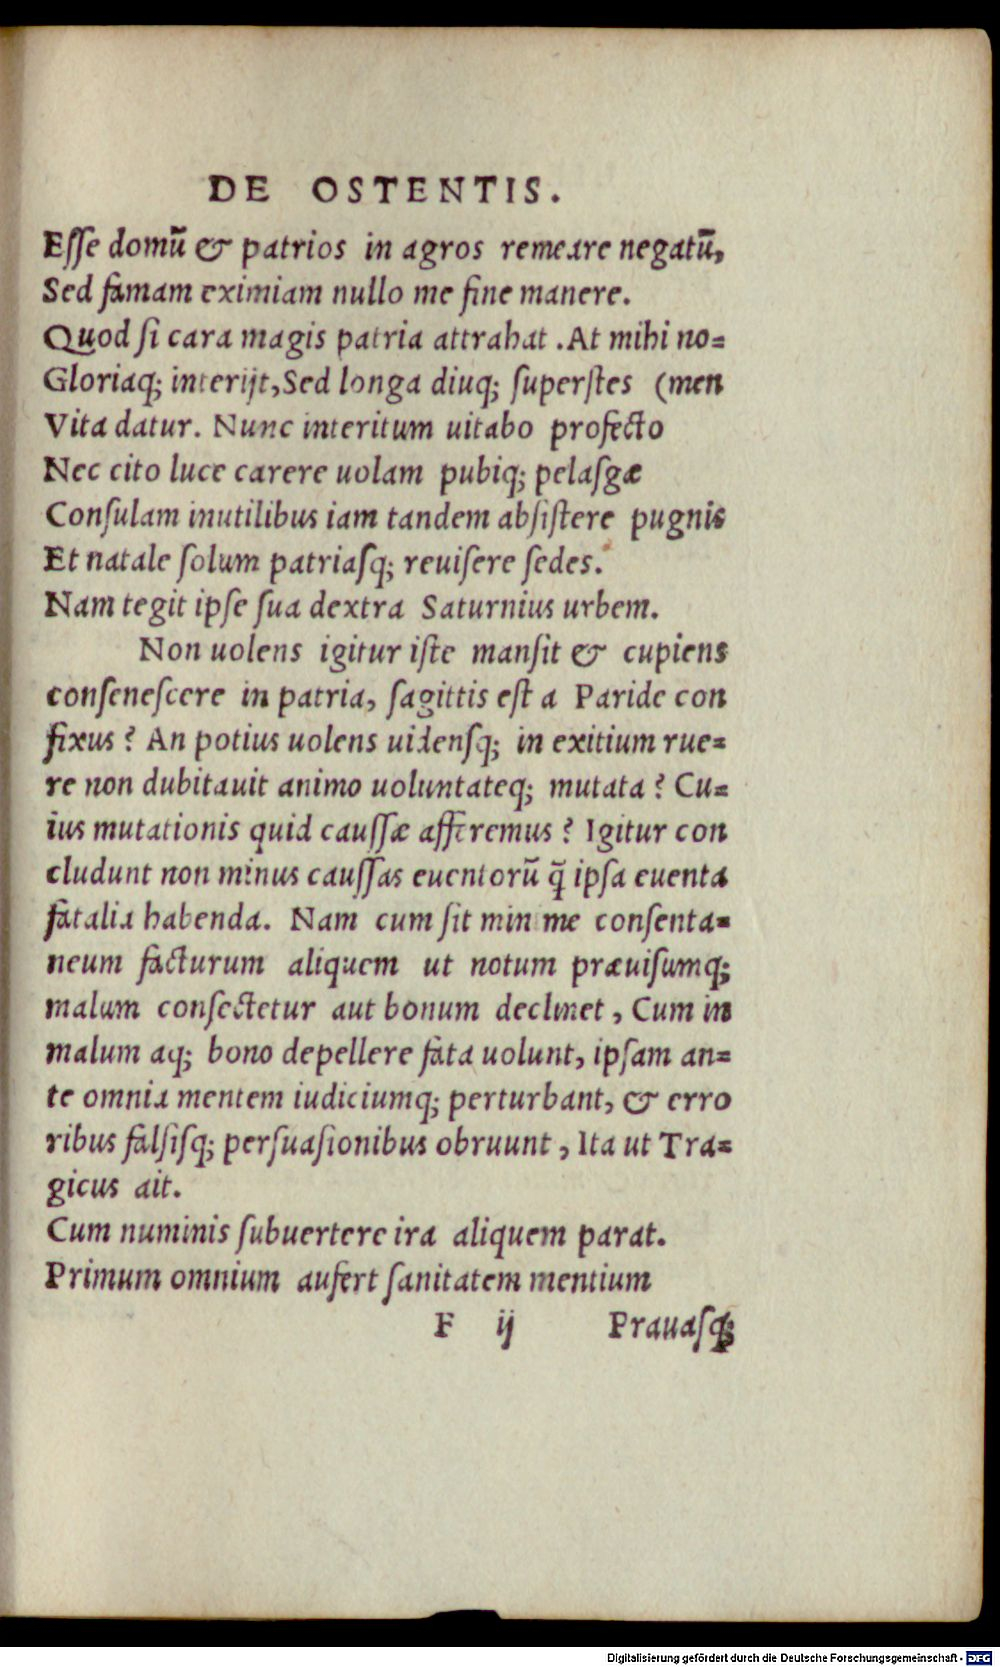 DE OSTENTIS.
Eſſe domū & patrios in agros remeare negatū,
Sed famam eximiam nullo me fine manere.
Quod ſi cara magis patria attrahat . At mihi no=
Gloriaq; interijt, Sed longa diuq; ſuperſtes (men
Vita datur. Nunc interitum uitabo profecto
Nec cito luce carere uolam pubiq; pelaſgæ
Conſulam inutilibus iam tandem abſiſtere pugnis
Et natale ſolum patriaſq; reuiſere ſedes.
Nam tegit ipſe ſua dextra Saturnius urbem.
Non uolens igitur iſte manſit & cupiens
conſeneſcere in patria, ſagittis eſt a Paride con
fixus ? An potius uolens uidenſq; in exitium rue=
re non dubitauit animo uoluntateq; mutata ? Cu=
ius mutationis quid cauſſæ afferemus ? Igitur con
cludunt non minus cauſſas euentorū q̃ ipſa euenta
fatalia habenda. Nam cum ſit minime conſenta=
neum facturum aliquem ut notum præuiſumq;
malum conſectetur aut bonum declinet , Cum in
malum aq; bono depellere fata uolunt, ipſam an=
te omnia mentem iudiciumq; perturbant, & erro
ribus falſiſq; perſuaſionibus obruunt , Ita ut Tra=
gicus ait.
Cum numinis ſubuertere ira aliquem parat.
Primum omnium aufert ſanitatem mentium
F ij Prauaſq;
Digitalisierung gefördert durch die Deutsche Forschungsgemeinschaft - DFG